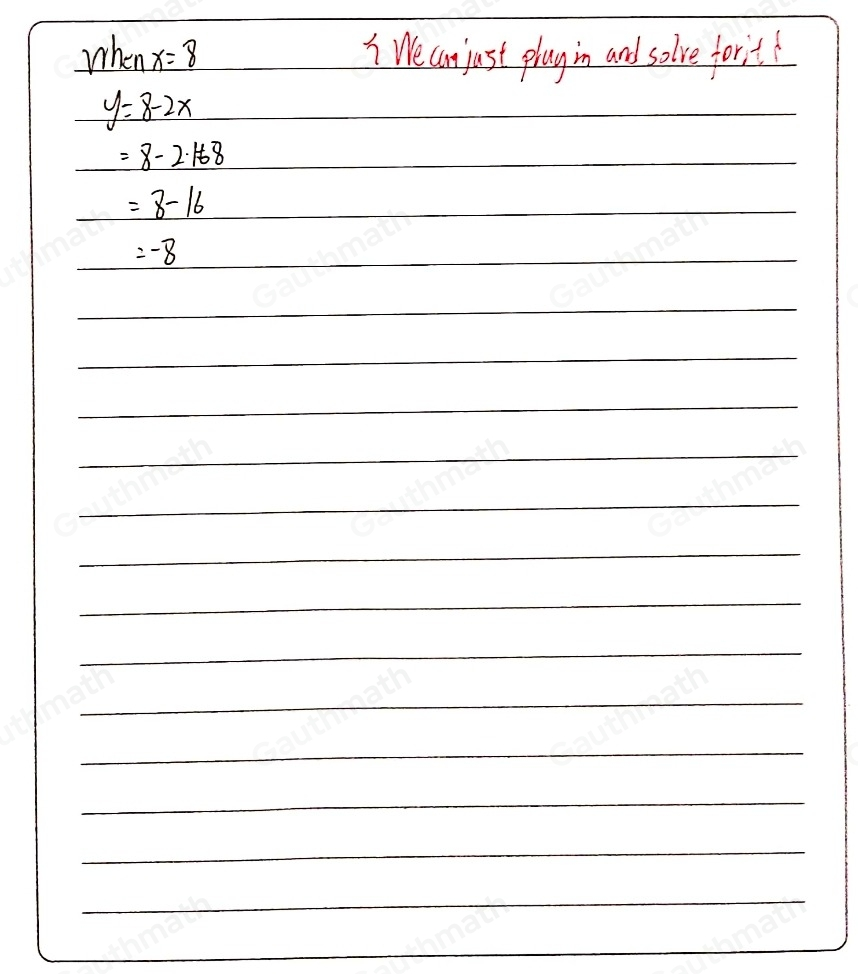 When x=8 { We can just plug in and solve for it }
y=8-2x
=8-2·8
=8-16
=-8
Gauthmath